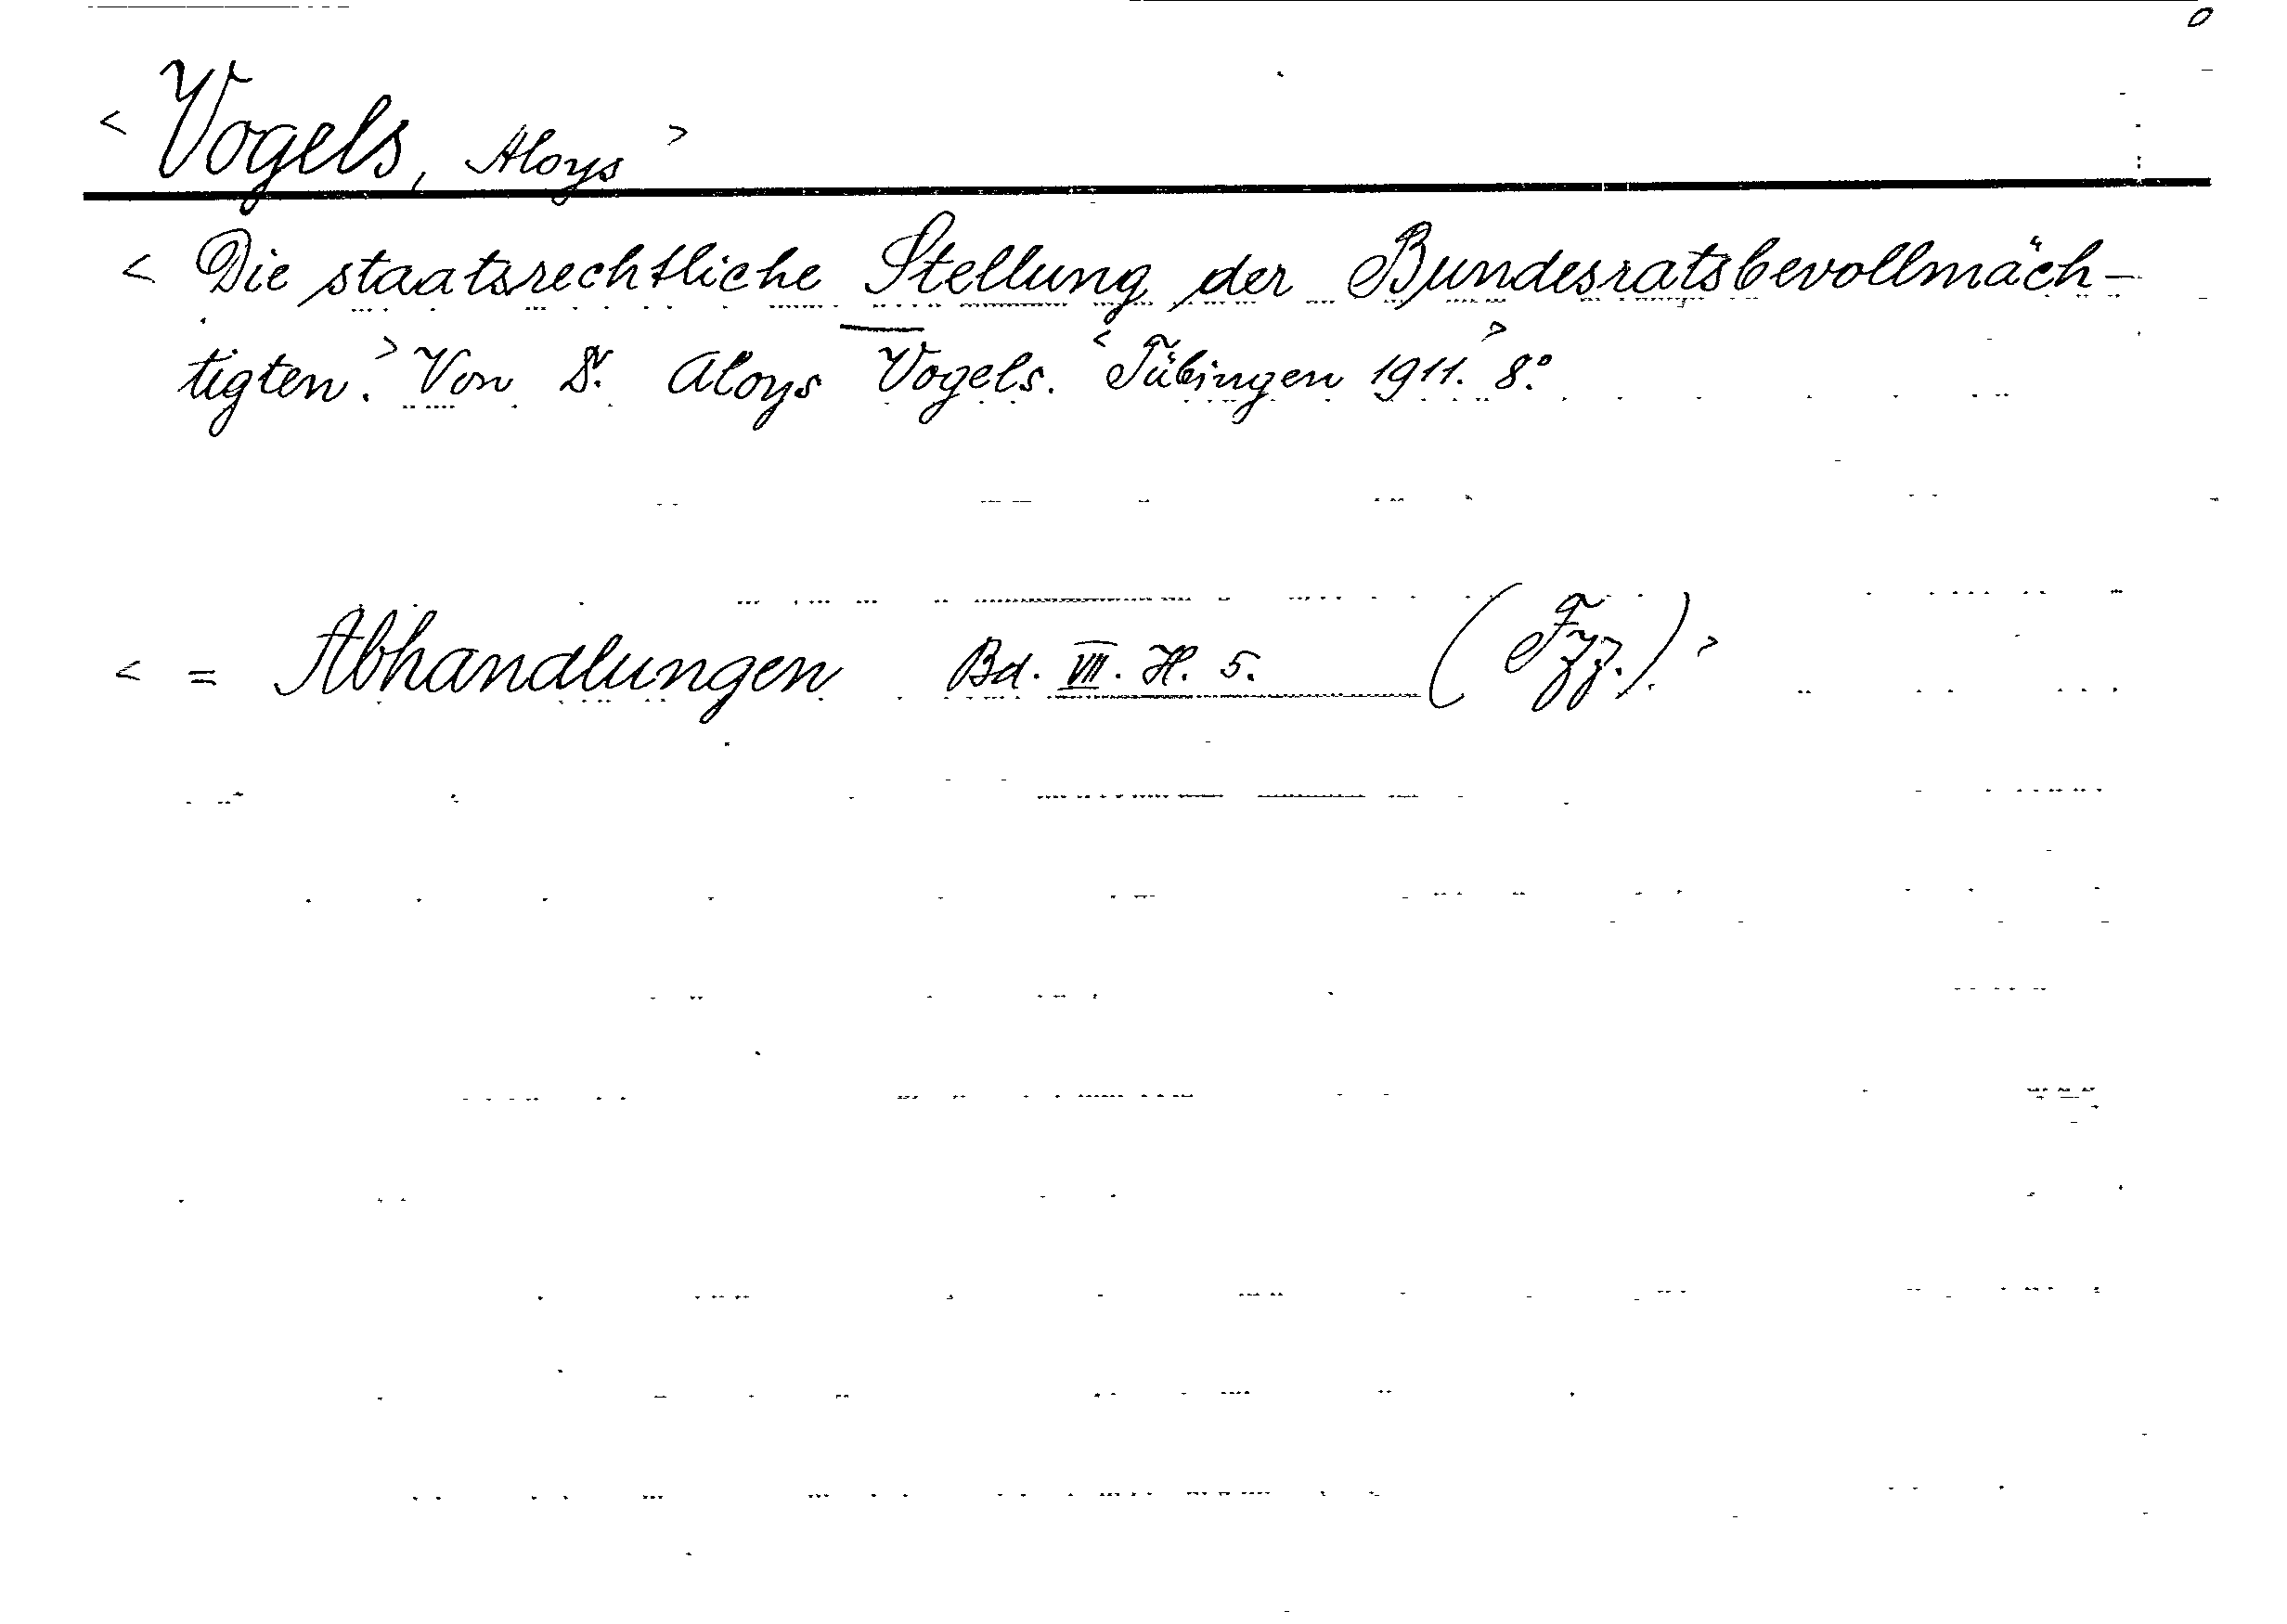 < Vogels, Aloys >
< Die staatsrechtliche Stellung der Bundesratsbevollmäch-
tigten. > Von Dr. Aloys Vogels. < Tübingen 1911. > 8.°
< = Abhandlungen Bd. VII. H. 5. (Fzz.) >